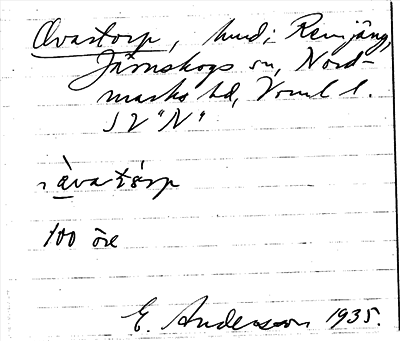 Avastorp, hmd; Renjäng,
Järnskogs sn, Nord-
marks hd, Vrml l.
SV "N"
àvatårp
100 öre
E. Andersson 1935.